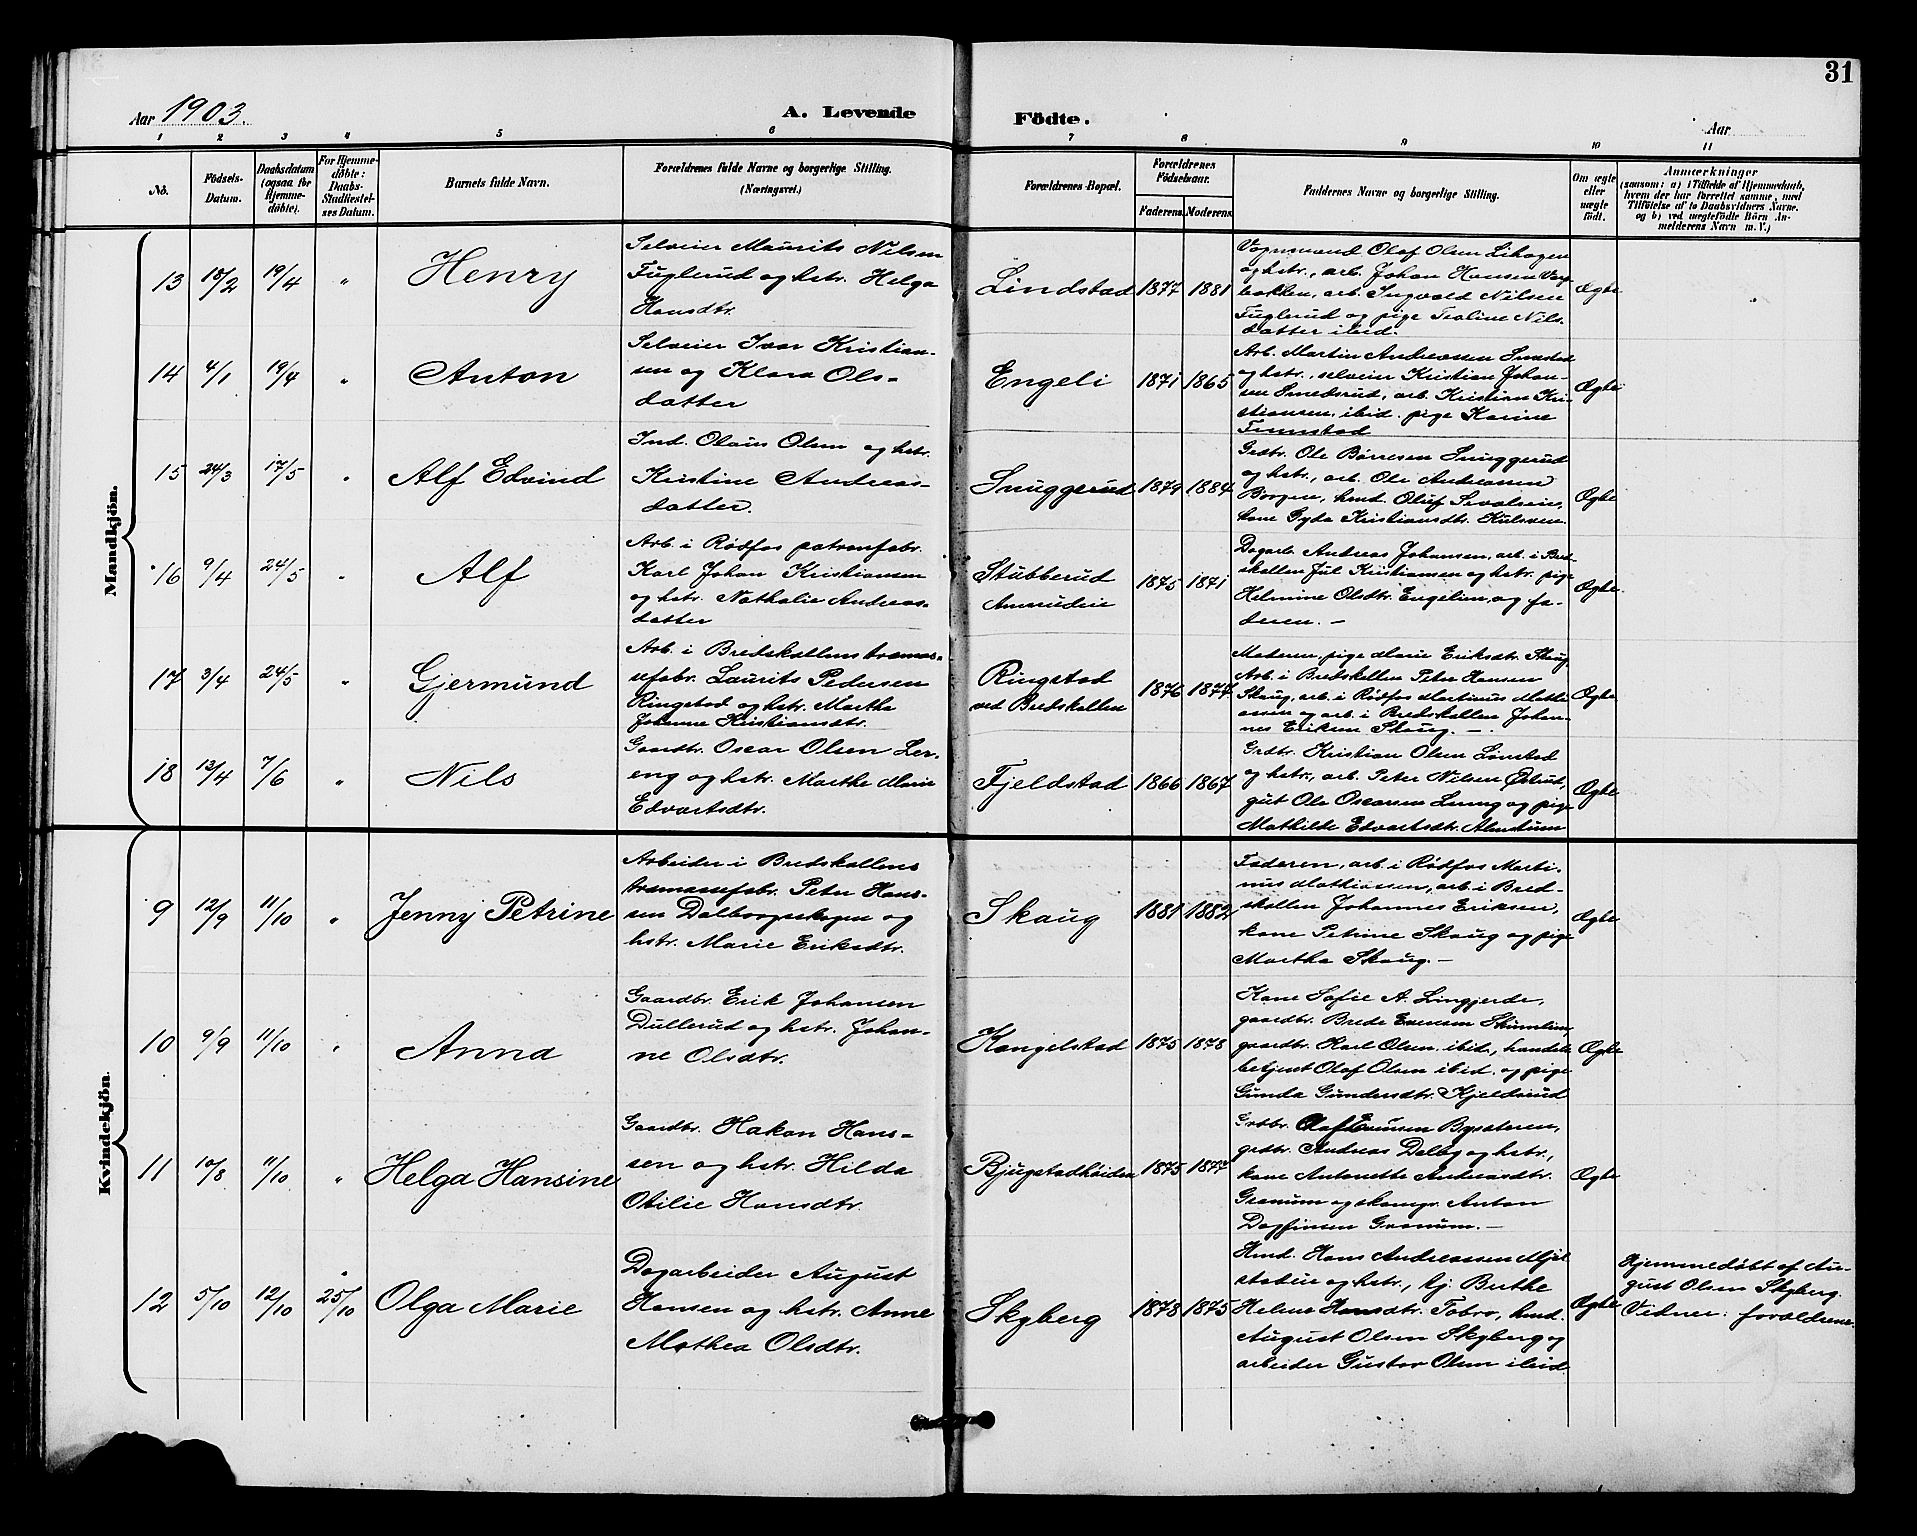 31
Aar 1903.
A. Levende Födte.
Aar
1 2 3 4 5 6 7 8 9 10 11
No.
Födsels-
Datum.
Daabsdatum
(ogsaa for
Hjemme-
döbte).
For Hjemme-
döbte:
Daabs-
Stadfæstel-
ses Datum.
Barnets fulde Navn.
Forældrenes fulde Navne og borgerlige Stilling.
(Næringsvei.)
Forældrenes Bopæl.
Forældrenes
Födselsaar.
Faderens
Moderens
Faddernes Navne og borgerlige Stilling.
Om ægte
eller
uægte
födt.
Anmærkninger
(saasom: a) i Tilfælde af Hjemmedaab,
hvem der har forrettet samme, med
Tilföielse af to Daabsvidners Navne,
og b) ved uægtefödte Börn An-
melderens Navn m. V.)
Mandkjön.
13 18/2 19/4 " Henry
Selveier Maurits Nilsen
Fuglerud og hstr. Helga
Hansdtr.
Lindstad 1877 1881
Vognmand Olaf Olsen Lihagen
og hstr., arb. Johan Hansen
bakken, arb. Ingvald Nilsen
Fuglerud og pige Teoline Nils-
datter ibid.
Ægte
14 4/1 19/4 " Anton
Selveier Ivar Kristian-
sen og Klara Ols-
datter
Engeli 1871 1865
Arb. Martin Andreassen Smestad
og hstr., selveier Kristian Johan-
sen Smedsrud, arb. Kristian Kri-
stiansen ibid. pige Karine
Finnstad
Ægte
15 24/3 17/5 " Alf Edvind
Ind. Olaus Olsen og hstr.
Kristine Andreas-
datter.
Snuggerud 1879 1884
Grdbr. Ole Børresen Snuggerud
og hstr., arb. Ole Andreassen
Borgen, hmd. Oluf Sevalsen,
kone Gyda Kristiansdtr. Kulsveen.
Ægte
16 9/4 24/5 " Alf
Arb. i Rødfos patronfabr.
Karl Johan Kristiansen
og hstr. Nathalie Andreas-
datter
Stubberud
Amundeie
1875 1871
Dagarb. Andreas Johansen, arb. i Bred-
skallen Jul Kristiansen og hstr. pige
Helmine Olsdtr. Engelien, og fa-
deren. —
Ægte
17 3/4 24/5 " Gjermund
Arb. i Bredskallens træmas-
sefabr. Laurits Pedersen
Ringstad og hstr. Martha
Johanne Kristiansdtr.
Ringstad
ved Bredskallen
1876 1874
Moderen, pige Marie Eriksdtr. Skaug
Arb. i Bredskallen Peter Hansen
Skaug, arb. i Rødfos Martinus Mathi-
assen og arb. i Bredskallen Johan-
nes Eriksen Skaug. —
Ægte
18 13/4 7/6 " Nils
Gaardbr. Oscar Olsen Ler-
eng og hstr. Marthe Marie
Edvartsdtr.
Fjeldstad 1866 1867
Grdbr. Kristian Olsen Linstad
og hstr., arb. Peter Nilsen
gut Ole Oscarsen Lereng og pige
Mathilde Edvartsdtr.
Ægte
Kvindekjön.
9 12/9 11/10 " Jenny Petrine
Arbeider i Bredskallens
træmassefabr. Peter Han-
sen Dalborgeshagen og
hstr. Marie Eriksdtr.
Skaug 1881 1882
Faderen, arb. i Rødfos Marti-
nus Mathiassen, arb. i Bred-
skallen Johannes Eriksen,
kone Petrine Skaug og pige
Martha Skaug. —
Ægte
10 9/9 11/10 " Anna
Gaardbr. Erik Johansen
Dullerud og hstr. Johan-
ne Olsdtr.
Kangelstad 1875 1878
Kone Sofie A. Lingjerde,
gaardbr. Brede Evensen
gaardbr. Karl Olsen ibid., handels-
betjent Olaf Olsen ibid. og pige
Gunda Gundersdtr. Kjeldsrud
Ægte
11 10/8 11/10 " Helga Hansine
Gaardbr. Hakon Hans-
sen og hstr. Hilda
Otilie Hansdtr.
Bjugstadhøiden 1875 1877
Grdbr. Olaf Evensen Bysæteren,
grdbr. Andreas Dalby og hstr.,
kone Antonette Andreasdtr.
Granum og skomgr. Anton
Dagfinsen Granum. —
Ægte
12 5/10 12/10 25/10 Olga Marie
Dagarbeider August
Hansen og hstr. Anne
Mathea Olsdtr.
Skyberg 1878 1875
Hmd. Hans Andreassen Mjøl-
stadeie og hstr., tj. Berthe
Helene Hansdtr. Tobro, hmd.
August Olsen Skyberg og
arbeider Gustav Olsen ibid
Ægte
Hjemmedøbt af Au-
gust Olsen Skyberg.
Vidner: forældrene.